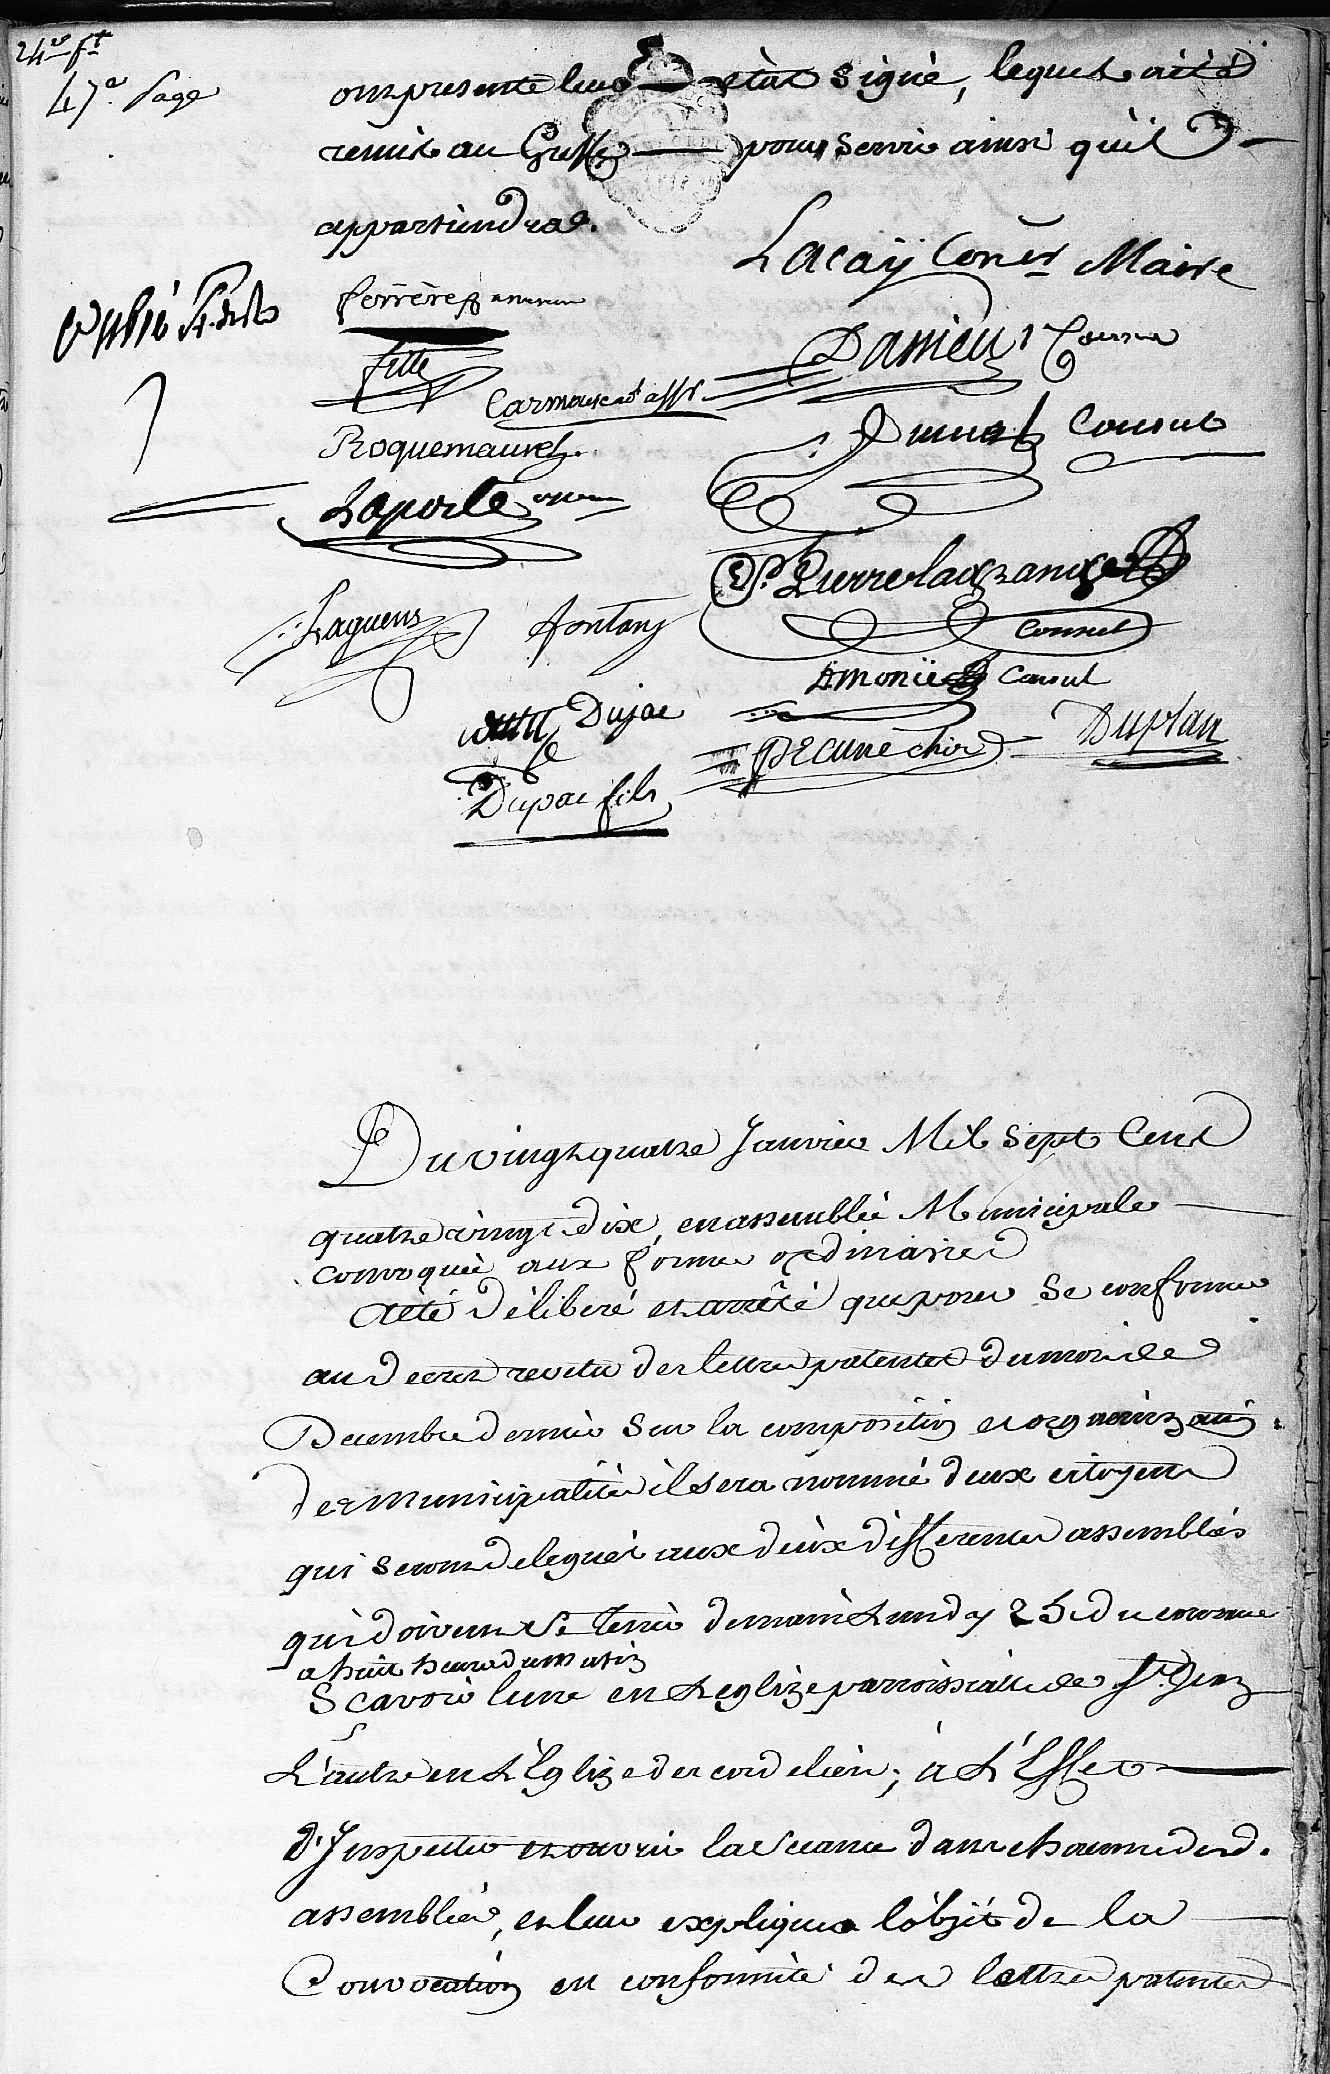 24e ft
47e page
ont presenté leur état signé, lequel a été
remis au Greffe pour servir ainsi qu'il
appartiendra.
Lacaÿ Coner Maire
ferrère
Damieu
fitte
Carmouse
Dumas Consul
Roquemaurel
Laporte
Pierre lagrange
Consul
Laguens fontan
Amoniè Consul
Dujac
Decune chir Duplan
Dupac fils
Du vingt quatre Janvier Mil Sept Cent
quatre vingt dix, en assemblée Municipale
convoquée aux formes ordinaires
a été déliberé et arrêté que pour se conformer
au decret revetu des lettres patentes du mois de
Decembre dernier sur la composition et organisation
des municipalités il sera nommé deux citoyens
qui seront delegués aux deux differentes assemblées
qui doivent se tenir demain Lundy 25e du courant
a huit heures du matin
Scavoir l'une en L'eglize parroissialle de St. Jean
L'autre en L'Eglize des cordeliers; à L'Effet
D'Inspecter et ouvrir la Seance dans chacune desd.
assemblées, et leur expliquer l'objet de la
Convocation en conformité des lettres patentes